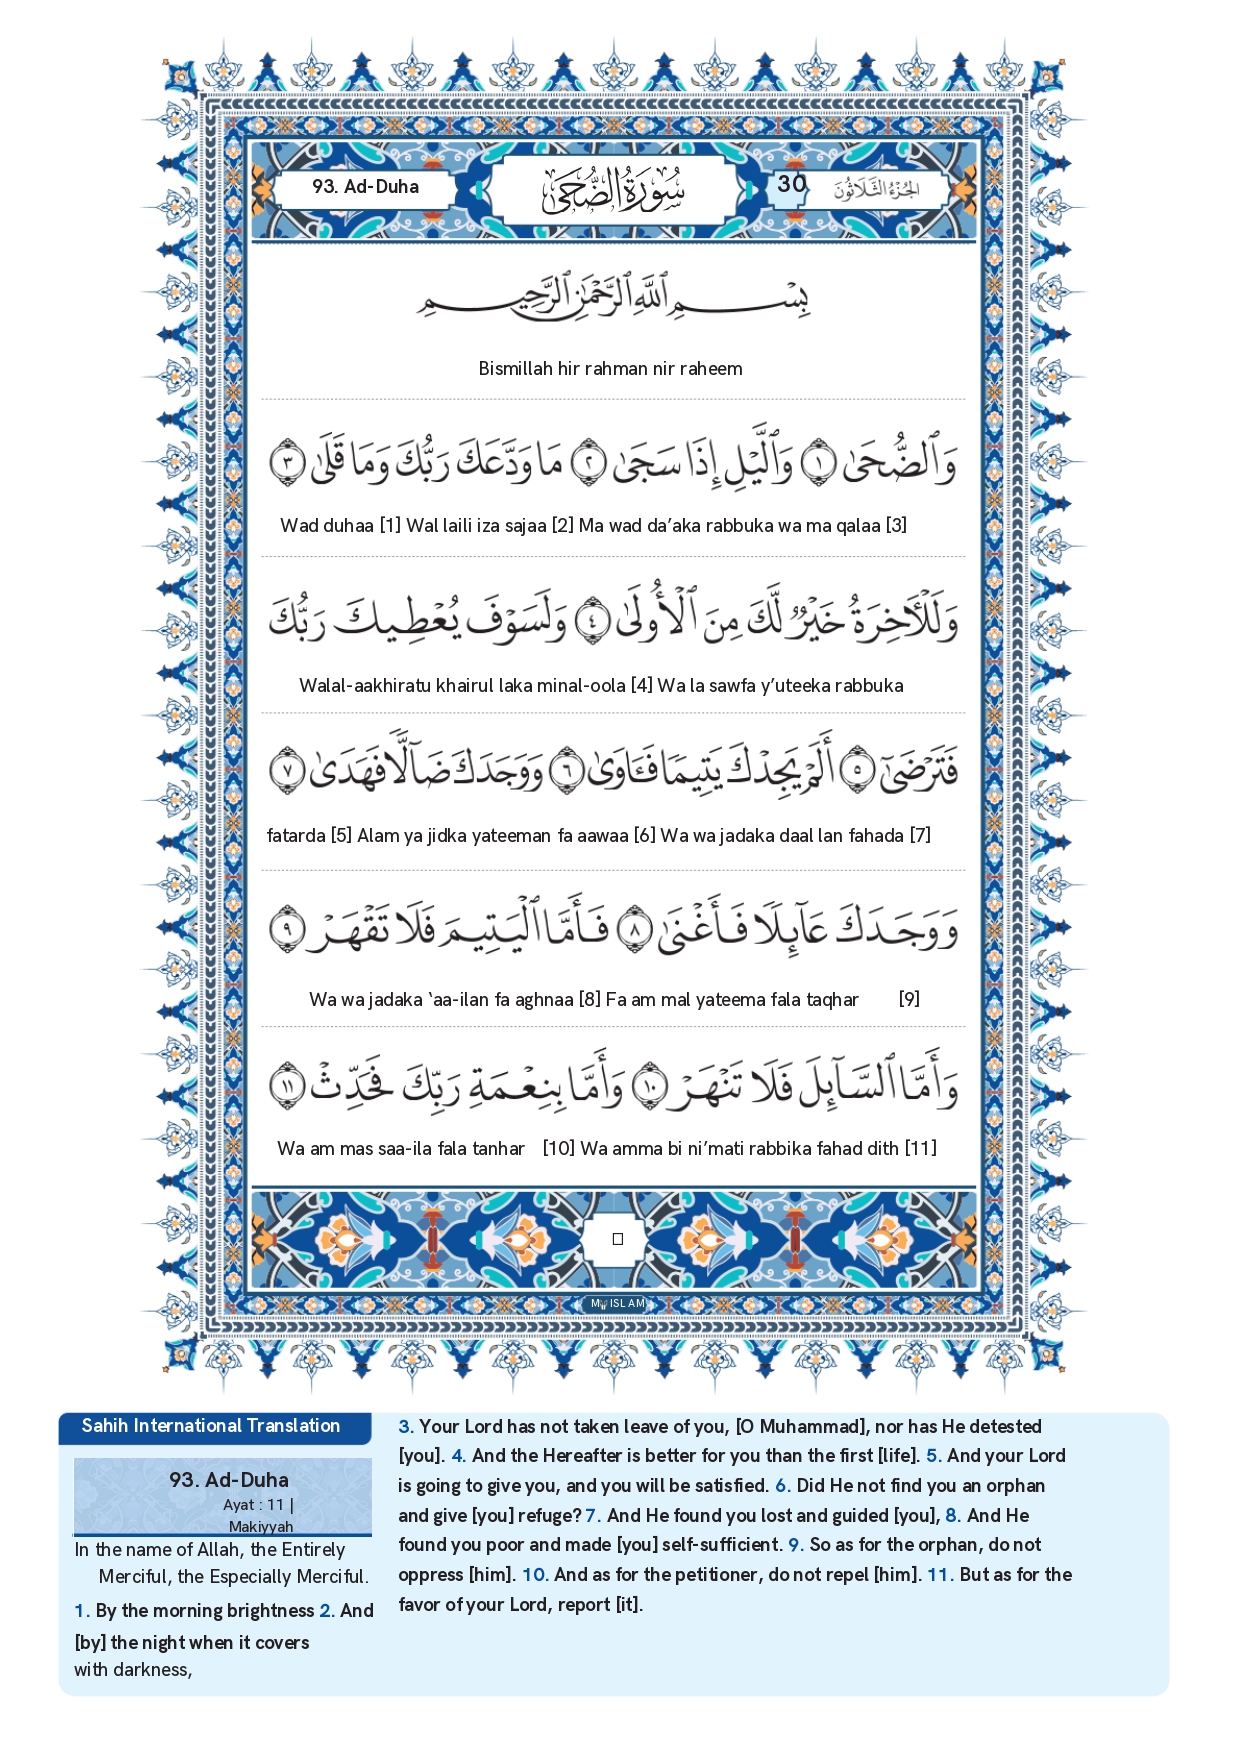 93. Ad-Duha
سُورَةُ الضُّحَىٰ
30
الجُزْءُ الثَّلَاثُونَ
بِسْمِ ٱللَّهِ ٱلرَّحْمَٰنِ ٱلرَّحِيمِ
Bismillah hir rahman nir raheem
وَٱلضُّحَىٰ ١ وَٱلَّيْلِ إِذَا سَجَىٰ ٢ مَا وَدَّعَكَ رَبُّكَ وَمَا قَلَىٰ ٣
Wad duhaa [1] Wal laili iza sajaa [2] Ma wad da’aka rabbuka wa ma qalaa [3]
وَلَلْـَٔاخِرَةُ خَيْرٌ لَّكَ مِنَ ٱلْأُولَىٰ ٤ وَلَسَوْفَ يُعْطِيكَ رَبُّكَ
Walal-aakhiratu khairul laka minal-oola [4] Wa la sawfa y’uteeka rabbuka
فَتَرْضَىٰٓ ٥ أَلَمْ يَجِدْكَ يَتِيمًا فَـَٔاوَىٰ ٦ وَوَجَدَكَ ضَآلًّا فَهَدَىٰ ٧
fatarda [5] Alam ya jidka yateeman fa aawaa [6] Wa wa jadaka daal lan fahada [7]
وَوَجَدَكَ عَآئِلًا فَأَغْنَىٰ ٨ فَأَمَّا ٱلْيَتِيمَ فَلَا تَقْهَرْ ٩
Wa wa jadaka ‘aa-ilan fa aghnaa [8] Fa am mal yateema fala taqhar [9]
وَأَمَّا ٱلسَّآئِلَ فَلَا تَنْهَرْ ١٠ وَأَمَّا بِنِعْمَةِ رَبِّكَ فَحَدِّثْ ١١
Wa am mas saa-ila fala tanhar [10] Wa amma bi ni’mati rabbika fahad dith [11]
My ISLAM
Sahih International Translation
93. Ad-Duha
Ayat : 11 |
Makiyyah
In the name of Allah, the Entirely
Merciful, the Especially Merciful.
1. By the morning brightness 2. And
[by] the night when it covers
with darkness,
3. Your Lord has not taken leave of you, [O Muhammad], nor has He detested
[you]. 4. And the Hereafter is better for you than the first [life]. 5. And your Lord
is going to give you, and you will be satisfied. 6. Did He not find you an orphan
and give [you] refuge? 7. And He found you lost and guided [you], 8. And He
found you poor and made [you] self-sufficient. 9. So as for the orphan, do not
oppress [him]. 10. And as for the petitioner, do not repel [him]. 11. But as for the
favor of your Lord, report [it].